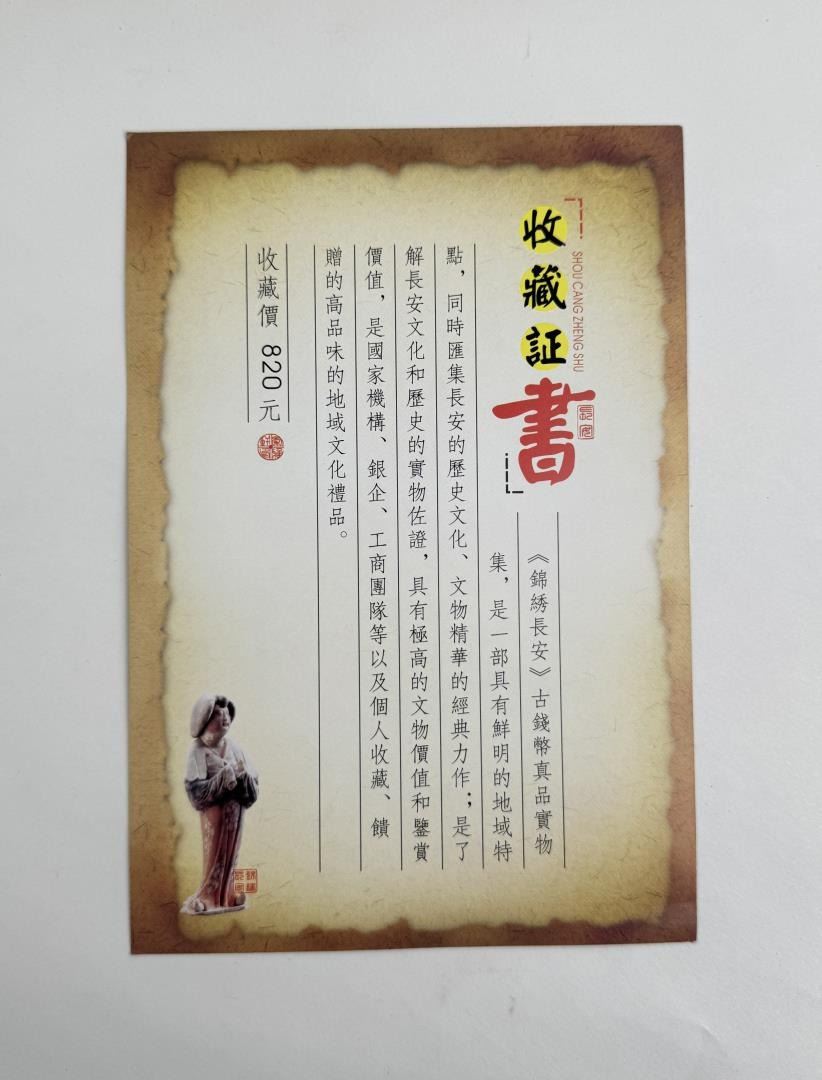 收藏証書
SHOU CANG ZHENG SHU
長安
《錦綉長安》古錢幣真品實物
集，是一部具有鮮明的地域特
點，同時匯集長安的歷史文化、文物精華的經典力作；是了
解長安文化和歷史的實物佐證，具有極高的文物價值和鑒賞
價值，是國家機構、銀企、工商團隊等以及個人收藏、饋
贈的高品味的地域文化禮品。
收藏價 820元